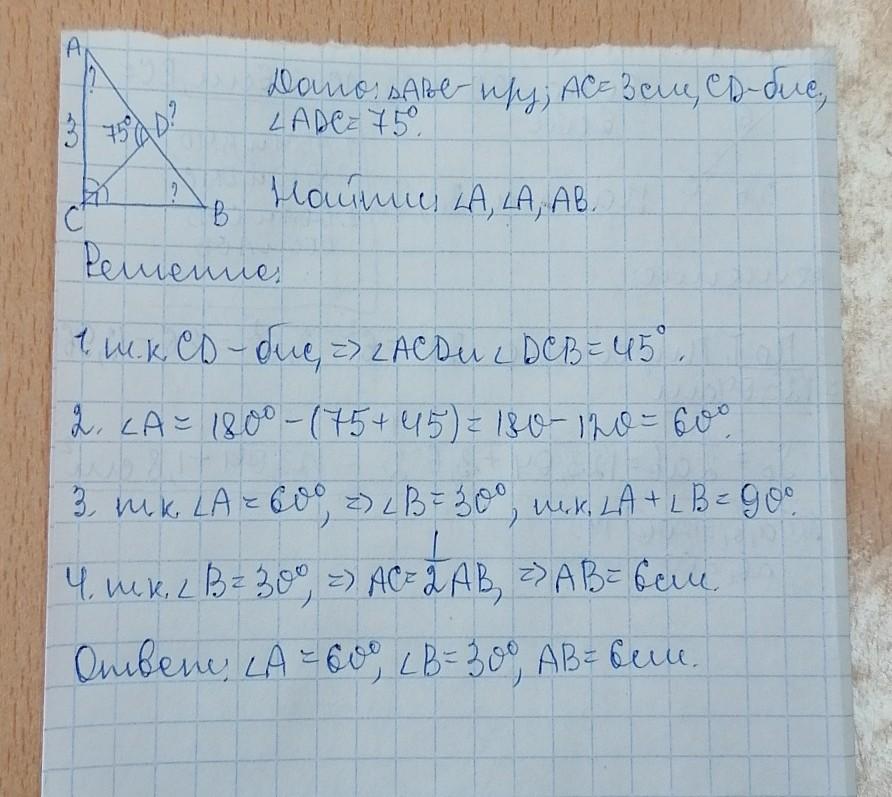 A
?
3
75°
D?
?
C
B
Дано: △ABC-пр/; AC=3см, CD-бис,
∠ADC=75°.
Найти: ∠A, ∠A, AB.
Решение:
1. т.к. CD-бис, => ∠ACD и ∠DCB=45°.
2. ∠A = 180°-(75+45)=180-120=60°.
3. т.к. ∠A=60°, => ∠B=30°, т.к. ∠A+∠B=90°.
4. т.к. ∠B=30°, => AC=1/2AB, => AB=6см.
Ответ: ∠A=60°, ∠B=30°, AB=6см.